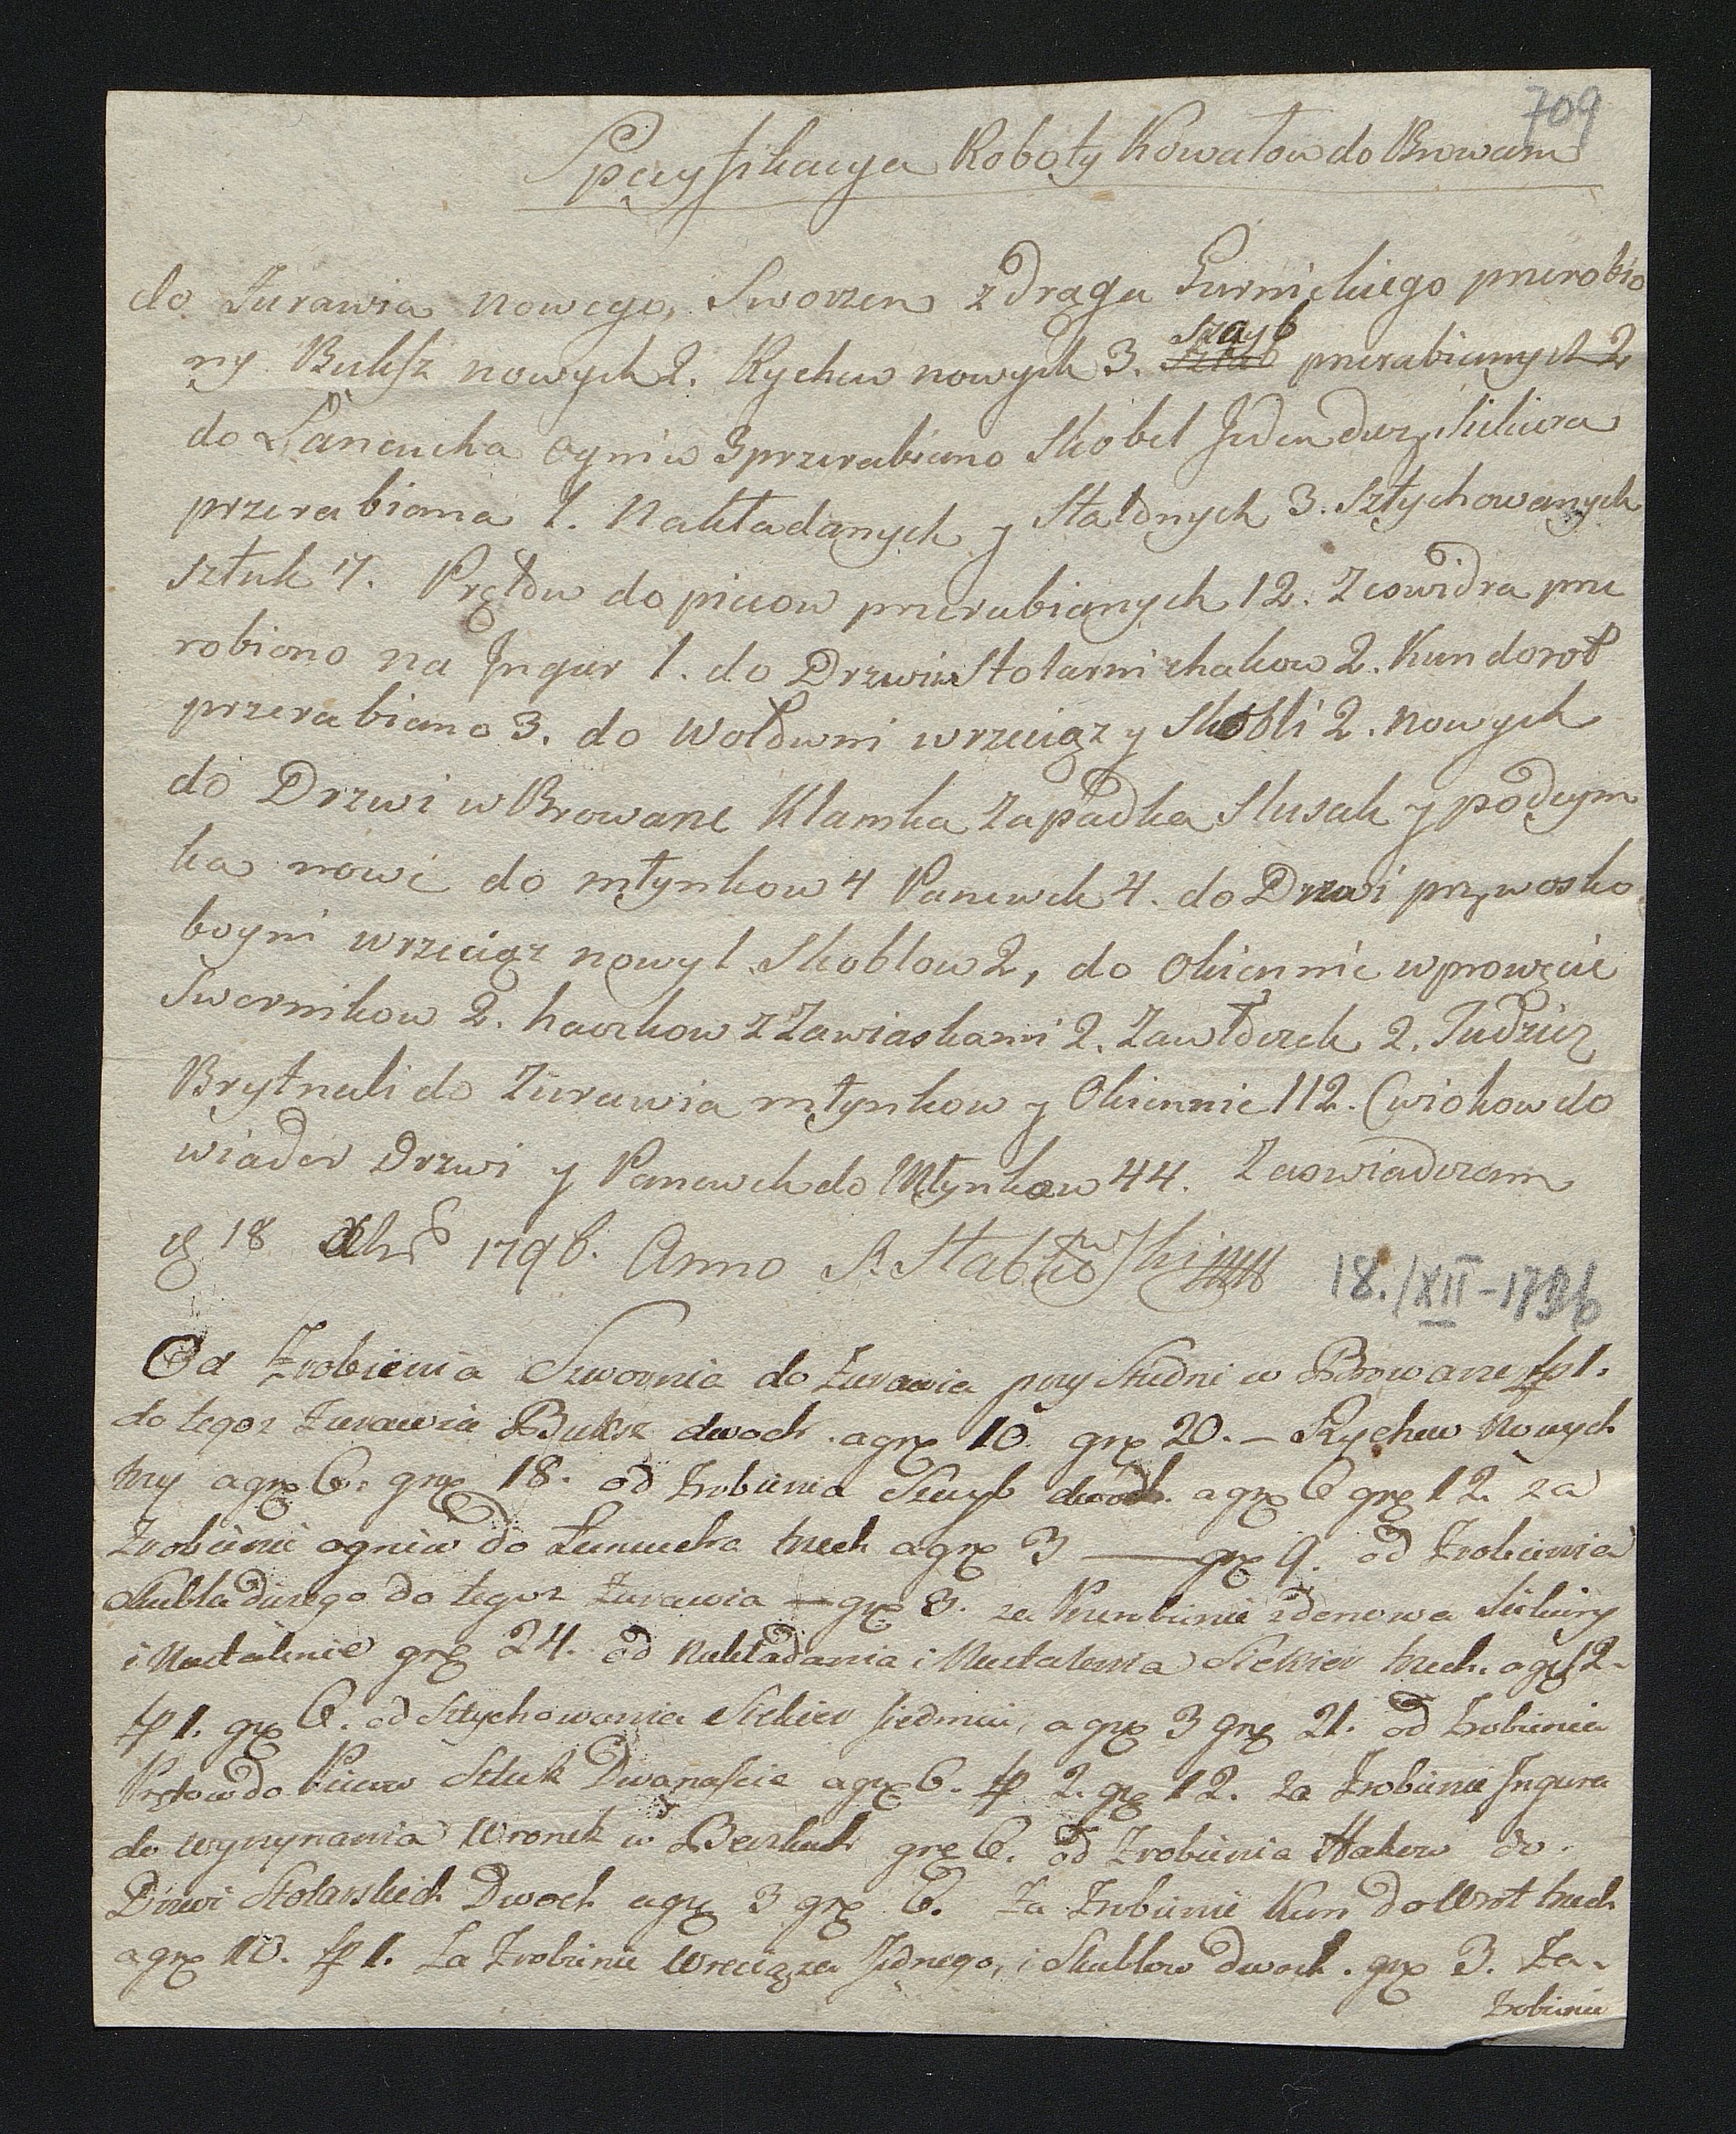 709
Specyfikacya Roboty Kowalow do Browaru
do Zurawia nowego, Sworzen z Draga Gurnickiego przerobio
ny Buksz nowych 2. Rychew nowych 3. Szayb przerabianych 2
do Łancucha ogniw 3 przerabiano Skobel Jeden duzy Sikiera
przerabiana 1. Nakładanych y Stalonych 3. Sztychowanych
sztuk 7. Prętow do piecow przerabianych 12. Z cowidra prze
robiono na Jngur 1. do Drzwiw Stolarni hakow 2. Kun dorot
przerabiano 3. do Wołowni wrzeciąz y Skobli 2. nowych
do Drzwi w Browarze Klamka Zapadka Skusak y podeym
ka nowe do młynkow 4 Panewek 4. do Drzwi przy wosko
boyni wrzeciąz nowy 1 Skoblow 2, do Okiennic w prowęcie
Swornikow 2. haczkow z Zawiaskami 2. Zawłoczek 2. Tudziez
Brytnali do Zurawia młynkow y Okiennic 112. Cwiokow do
wiader Drzwi y Panewek do Młynkow 44. Zaswiadczam
d 18 Xbris 1796. Anno S. Stabłowski mp
18./XII-1796
Od Zrobienia Sworznia do Zurawia przy Studni w Browarze fp 1.
do tegoz Zurawia Buksz dwoch. a grp 10. grp 20. – Rychew Nowych
trzy a grp 6. grp 18. od Zrobienia Szayb dwoch. a grp 6 grp 12. za
Zrobienie ogniw do Łancucha trzech a grp 3 — grp 9. od Zrobienia
Skubla duzego do tegoz Zurawia — grp 8. za Przerobienie zdenowa Sikiery
i Nastalenie grp 24. od Nakładania i Nastalenia Siekier trzech. a grp 12.
fp 1. grp 6. od Sztychowania Siekier siedmiu, a grp 3 grp 21. od Zrobienia
Prętow do Piecow Sztuk Dwanascie a grp 6. fp 2. grp 12. za Zrobienie Jngura
do wyrzynania Wronek w Beczkach grp 6. od Zrobienia Hakow do.
Drzwi Stolarskich Dwoch a grp 3 grp 6. Za Zrobienie Kun do Wrot trzech
a grp 10. fp 1. Za Zrobienie Wrzeciąza Jednego, i Skublow dwoch. grp 3. Za
Zrobienie